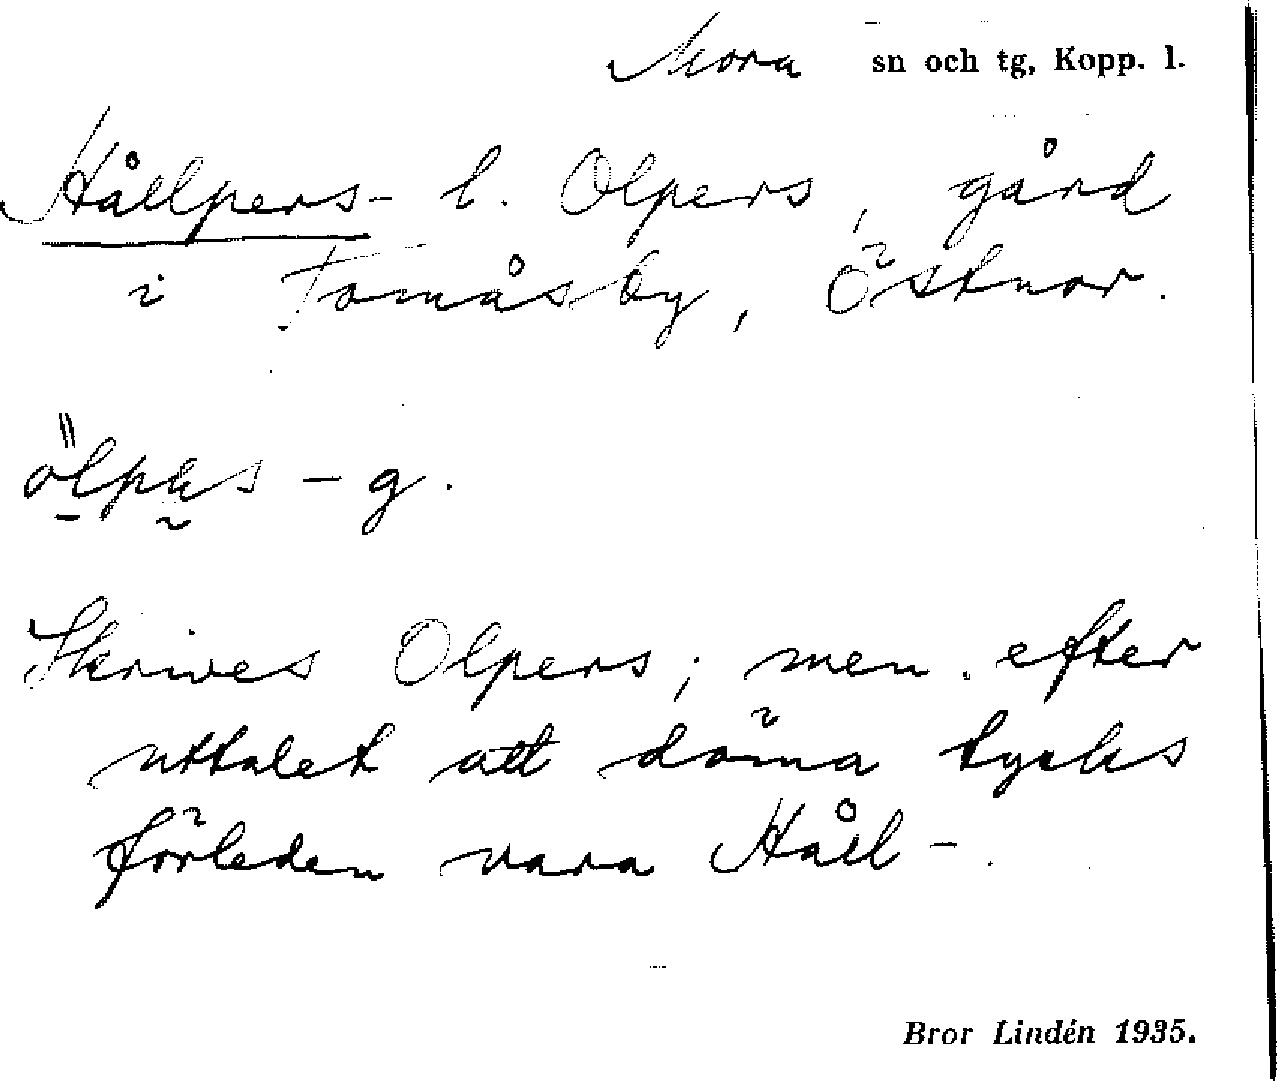 Mora sn och tg, Kopp. l.
Hållpers- l. Olpers, gård
i Tomåsby, Östnor.
ölpas - g.
Skrives Olpers; men efter
uttalet att döma tycks
förleden vara Håll-.
Bror Lindén 1935.